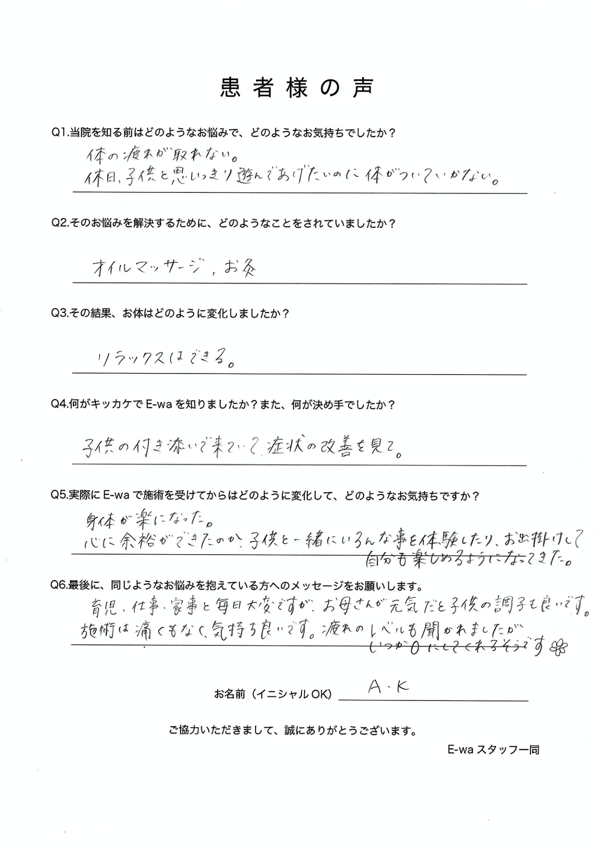 患者様の声
Q1.当院を知る前はどのようなお悩みで、どのようなお気持ちでしたか？
体の疲れが取れない。
休日、子供と思いっきり遊んであげたいのに体がついていかない。
Q2.そのお悩みを解決するために、どのようなことをされていましたか？
オイルマッサージ、お灸
Q3.その結果、お体はどのように変化しましたか？
リラックスはできる。
Q4.何がキッカケでE-waを知りましたか？また、何が決め手でしたか？
子供の付き添いで来ていて、症状の改善を見て。
Q5.実際にE-waで施術を受けてからはどのように変化して、どのようなお気持ちですか？
身体が楽になった。
心に余裕ができたのか、子供と一緒にいろんな事を体験したり、お出掛けして
自分も楽しめるようになってきた。
Q6.最後に、同じようなお悩みを抱えている方へのメッセージをお願いします。
育児、仕事、家事と毎日大変ですが、お母さんが元気だと子供の調子も良いです。
施術は痛くもなく、気持ち良いです。疲れのレベルも聞かれましたが
いつか0にしてくれるそうです
お名前（イニシャルOK） A.K
ご協力いただきまして、誠にありがとうございます。
E-waスタッフ一同